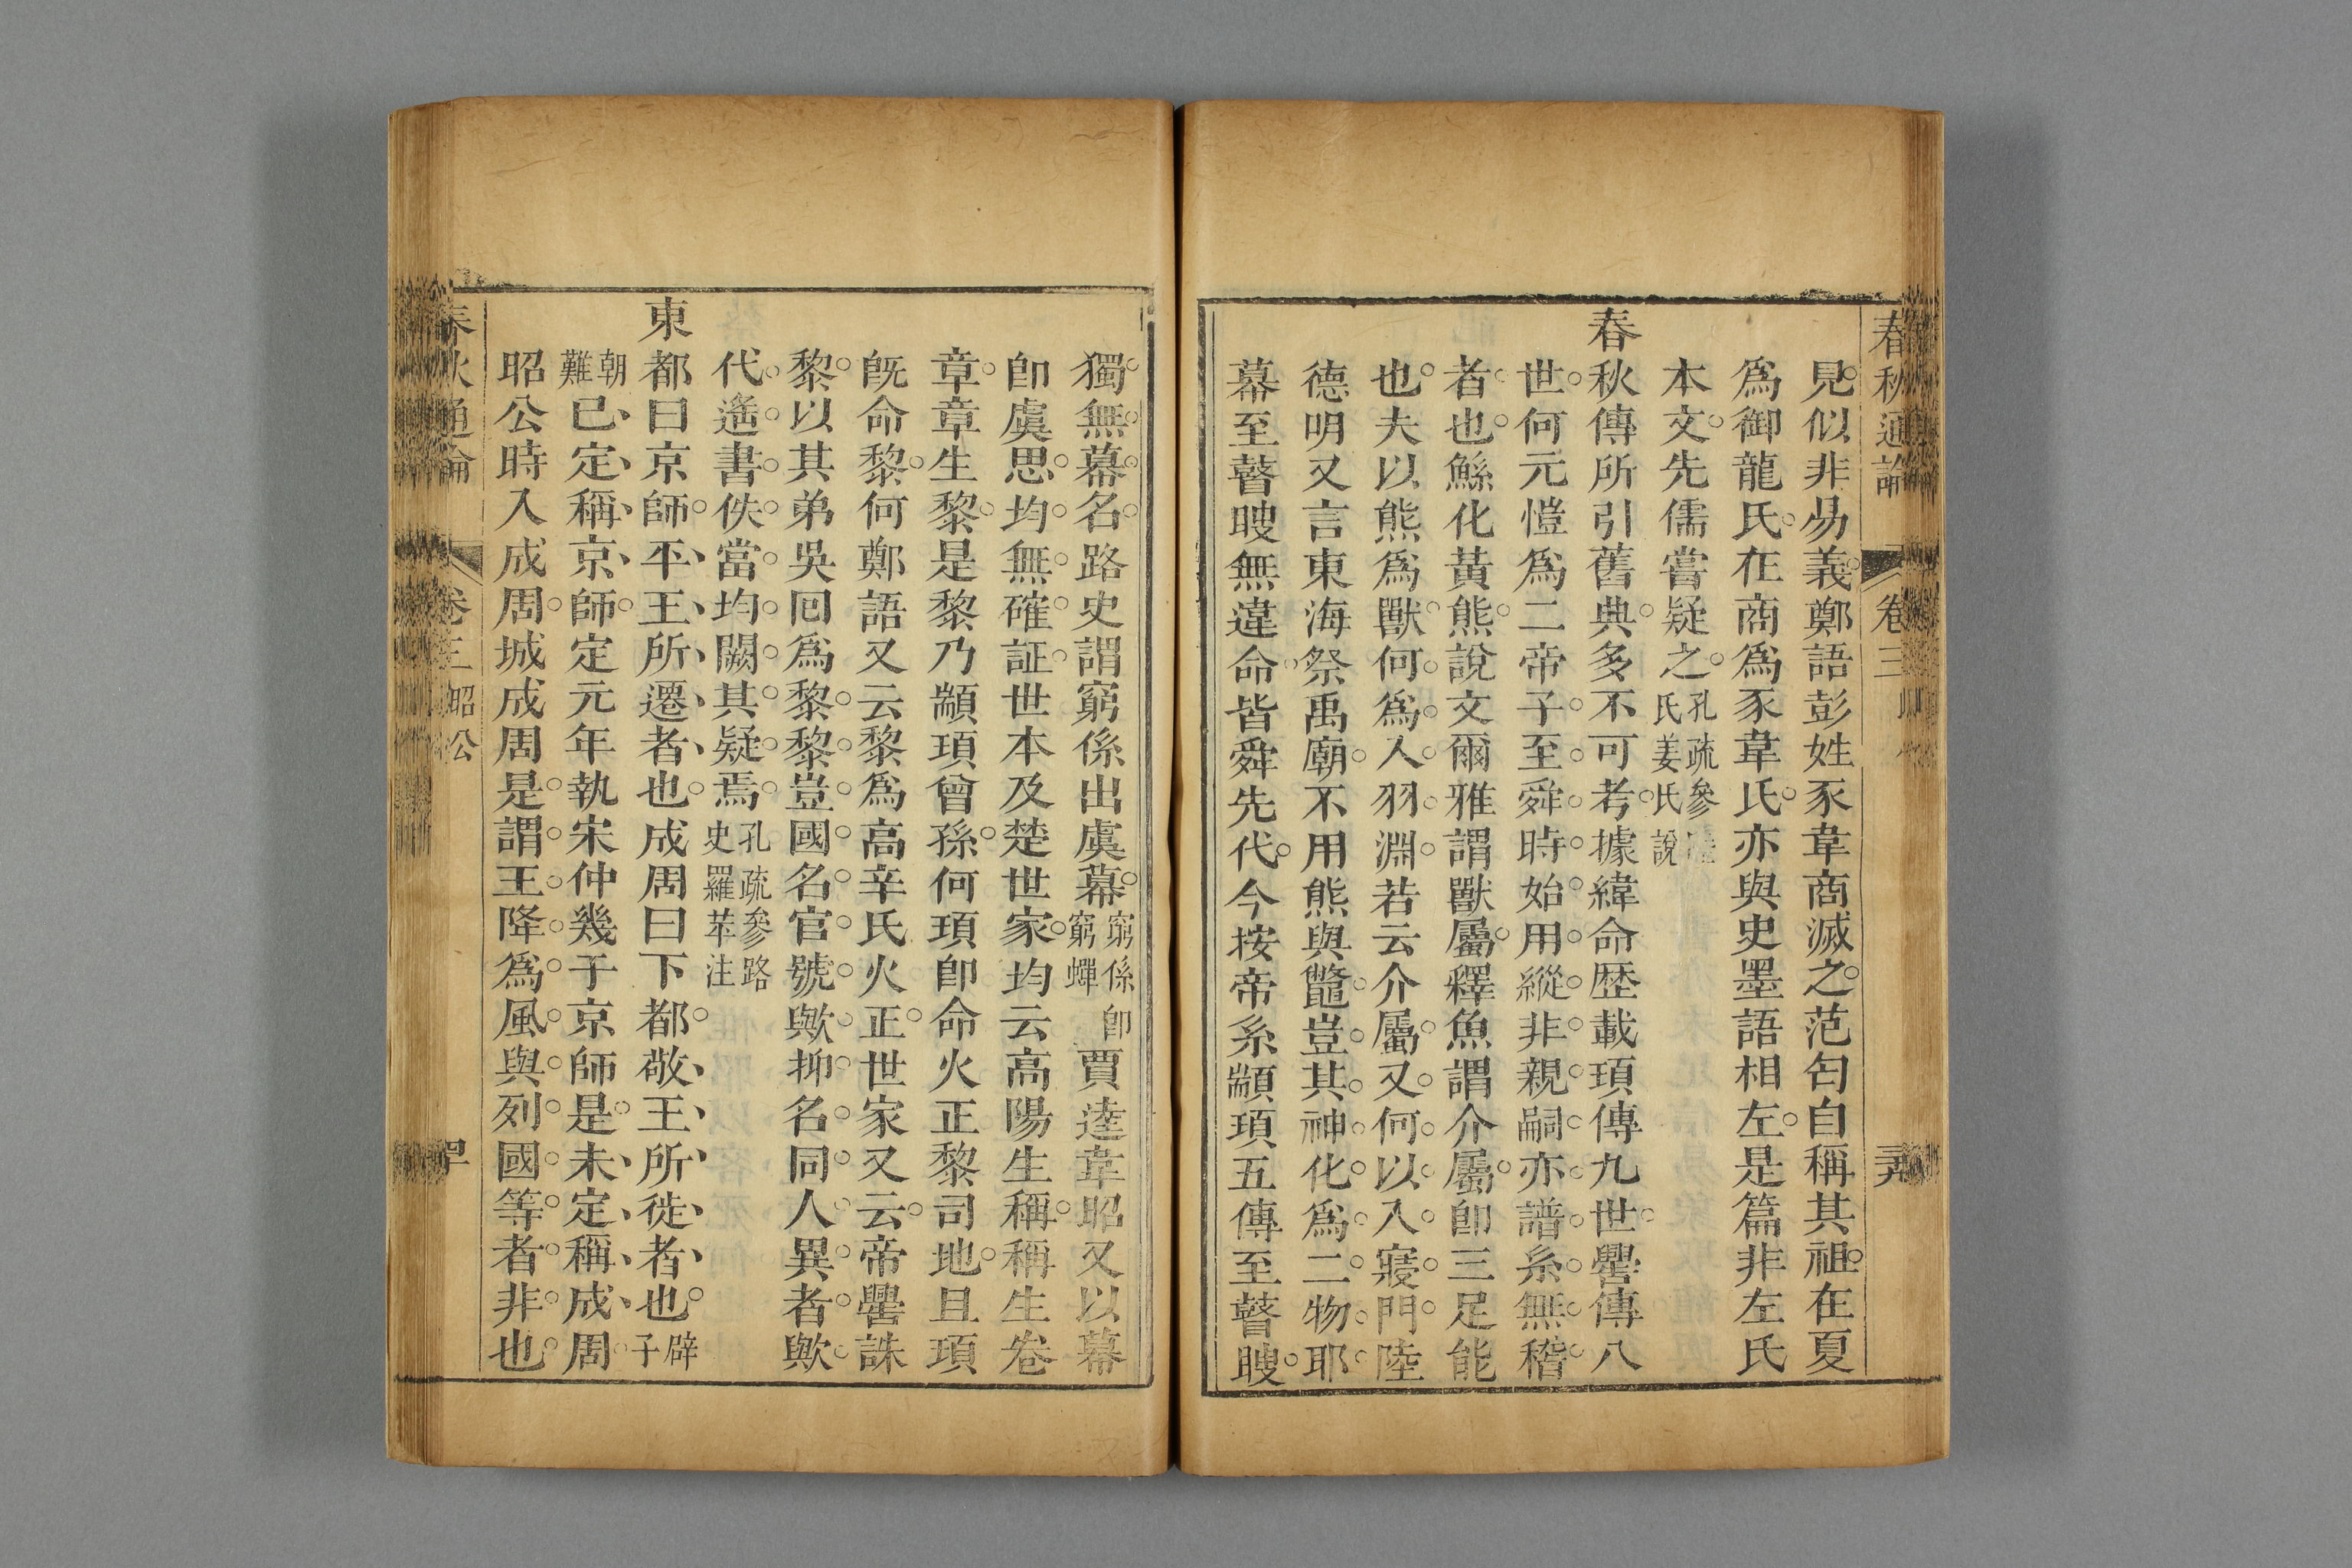 春秋通論 卷三
見似非易義鄭語彭姓豕韋商滅之范匄自稱其祖在夏
爲御龍氏在商爲豕韋氏亦與史墨語相左是篇非左氏
本文先儒嘗疑之孔疏參氏姜氏說
春秋傳所引舊典多不可考據緯命歴載頊傳九世嚳傳八
世何元愷爲二帝子至舜時始用縱非親嗣亦譜系無稽
者也鯀化黃熊說文爾雅謂獸屬釋魚謂介屬卽三足能
也夫以熊爲獸何爲人羽淵若云介屬又何以入寢門陸
德明又言東海祭禹廟不用熊與鼈豈其神化爲二物耶
幕至瞽瞍無違命皆舜先代今按帝系顓頊五傳至瞽瞍
獨無幕名路史謂窮係出虞幕窮係卽窮蟬賈逵韋昭又以幕
卽虞思均無確証世本及楚世家均云高陽生稱稱生卷
章章生黎是黎乃顓頊曾孫何頊卽命火正黎司地且頊
旣命黎何鄭語又云黎爲高辛氏火正世家又云帝嚳誅
黎以其弟吳囘爲黎黎豈國名官號歟抑名同人異者歟
代遙書佚當均闕其疑焉孔疏參路史羅苹注
東都曰京師平王所遷者也成周曰下都敬王所徙者也辟子
朝難已定稱京師定元年執宋仲幾于京師是未定稱成周
昭公時入成周城成周是謂王降爲風與列國等者非也
春秋通論 卷三 昭公